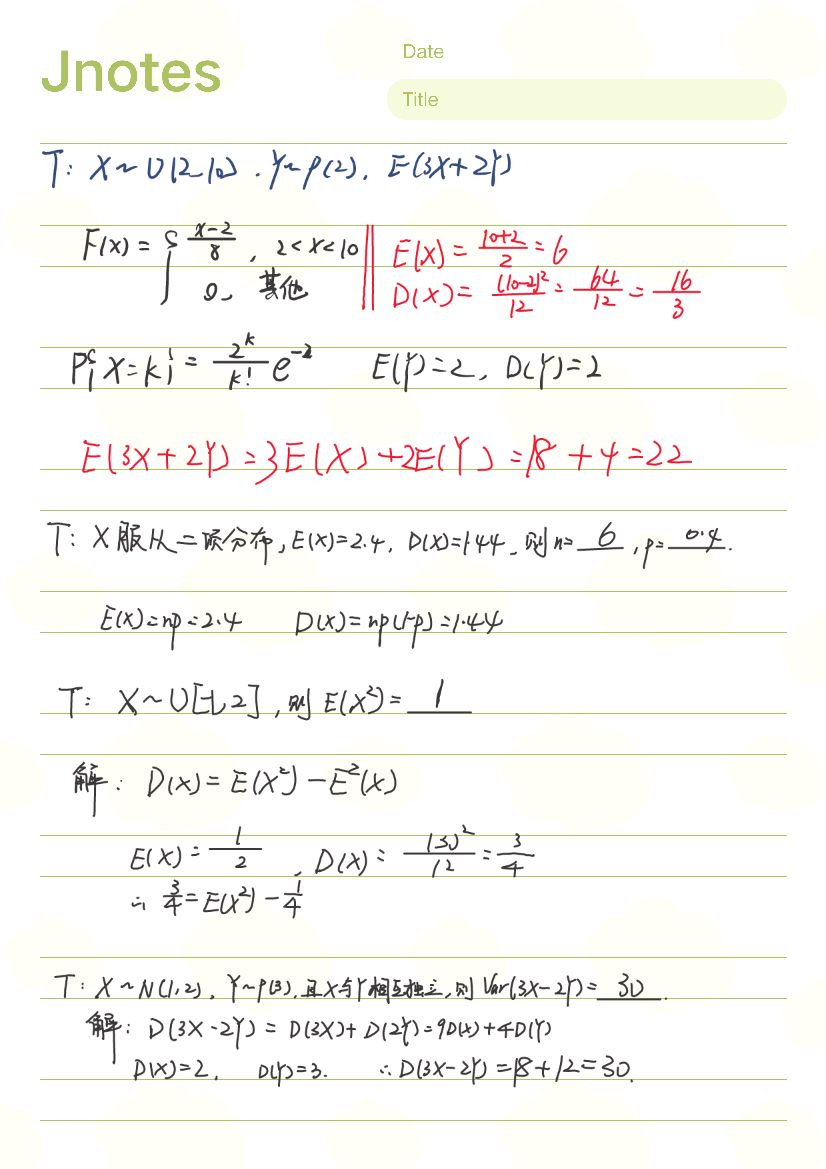 Jnotes
Date
Title
T: X~U[2,10]. Y~P(2). E(3X+2Y)
F(x) = { x-2/8, 2<x<10
0, 其他
E(X) = 10+2/2 = 6
D(X) = (10-2)²/12 = 64/12 = 16/3
P{X=k} = 2^k/k! e^-2 E(Y)=2, D(Y)=2
E(3X+2Y)=3E(X)+2E(Y)=18+4=22
T: X服从二项分布, E(X)=2.4, D(X)=1.44, 则n=6, p=0.4.
E(X)=np=2.4 D(X)=np(1-p)=1.44
T: X~U[-1,2], 则E(X²)=1
解: D(X)=E(X²)-E²(X)
E(X)=1/2, D(X)=(3)²/12=3/4
∴ 3/4=E(X²)-1/4
T: X~N(1,2), Y~P(3), 且X与Y相互独立, 则Var(3X-2Y)=30.
解: D(3X-2Y)=D(3X)+D(2Y)=9D(X)+4D(Y)
D(X)=2, D(Y)=3. ∴D(3X-2Y)=18+12=30.